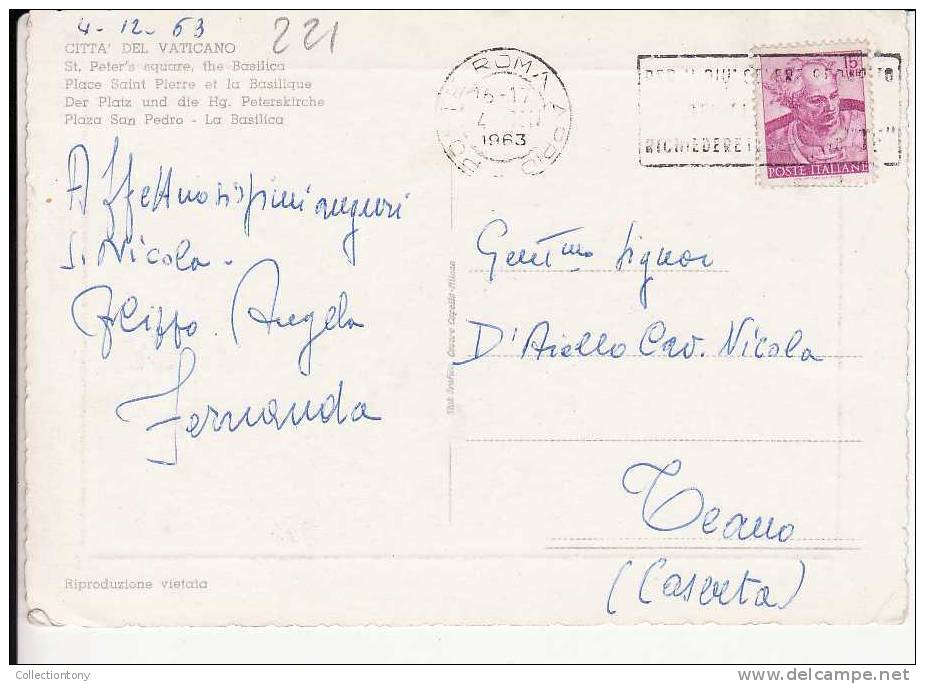 4-12-63
221
CITTA' DEL VATICANO
St. Peter's square, the Basilica
Place Saint Pierre et la Basilique
Der Platz und die Hg. Peterskirche
Plaza San Pedro - La Basilica
Affettuosissimi auguri
S. Nicola -
Filippo. Angela
Fernanda
ROMA APPIO
16-17
4
1963
15
POSTE ITALIANE
RICHIEDERE
Gentmo Signor
D'Aiello Cav. Nicola
Teano
(Caserta)
Riproduzione vietata
Collectiontony
delcampe.net